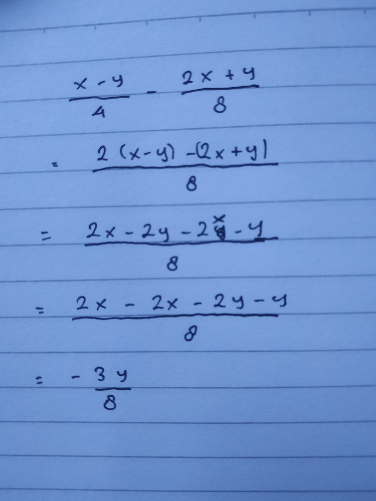 x - y / 4 - 2x + y / 8
= 2 (x-y) -(2x+y) / 8
= 2x - 2y - 2x - y / 8
= 2x - 2x - 2y - y / 8
= - 3y / 8